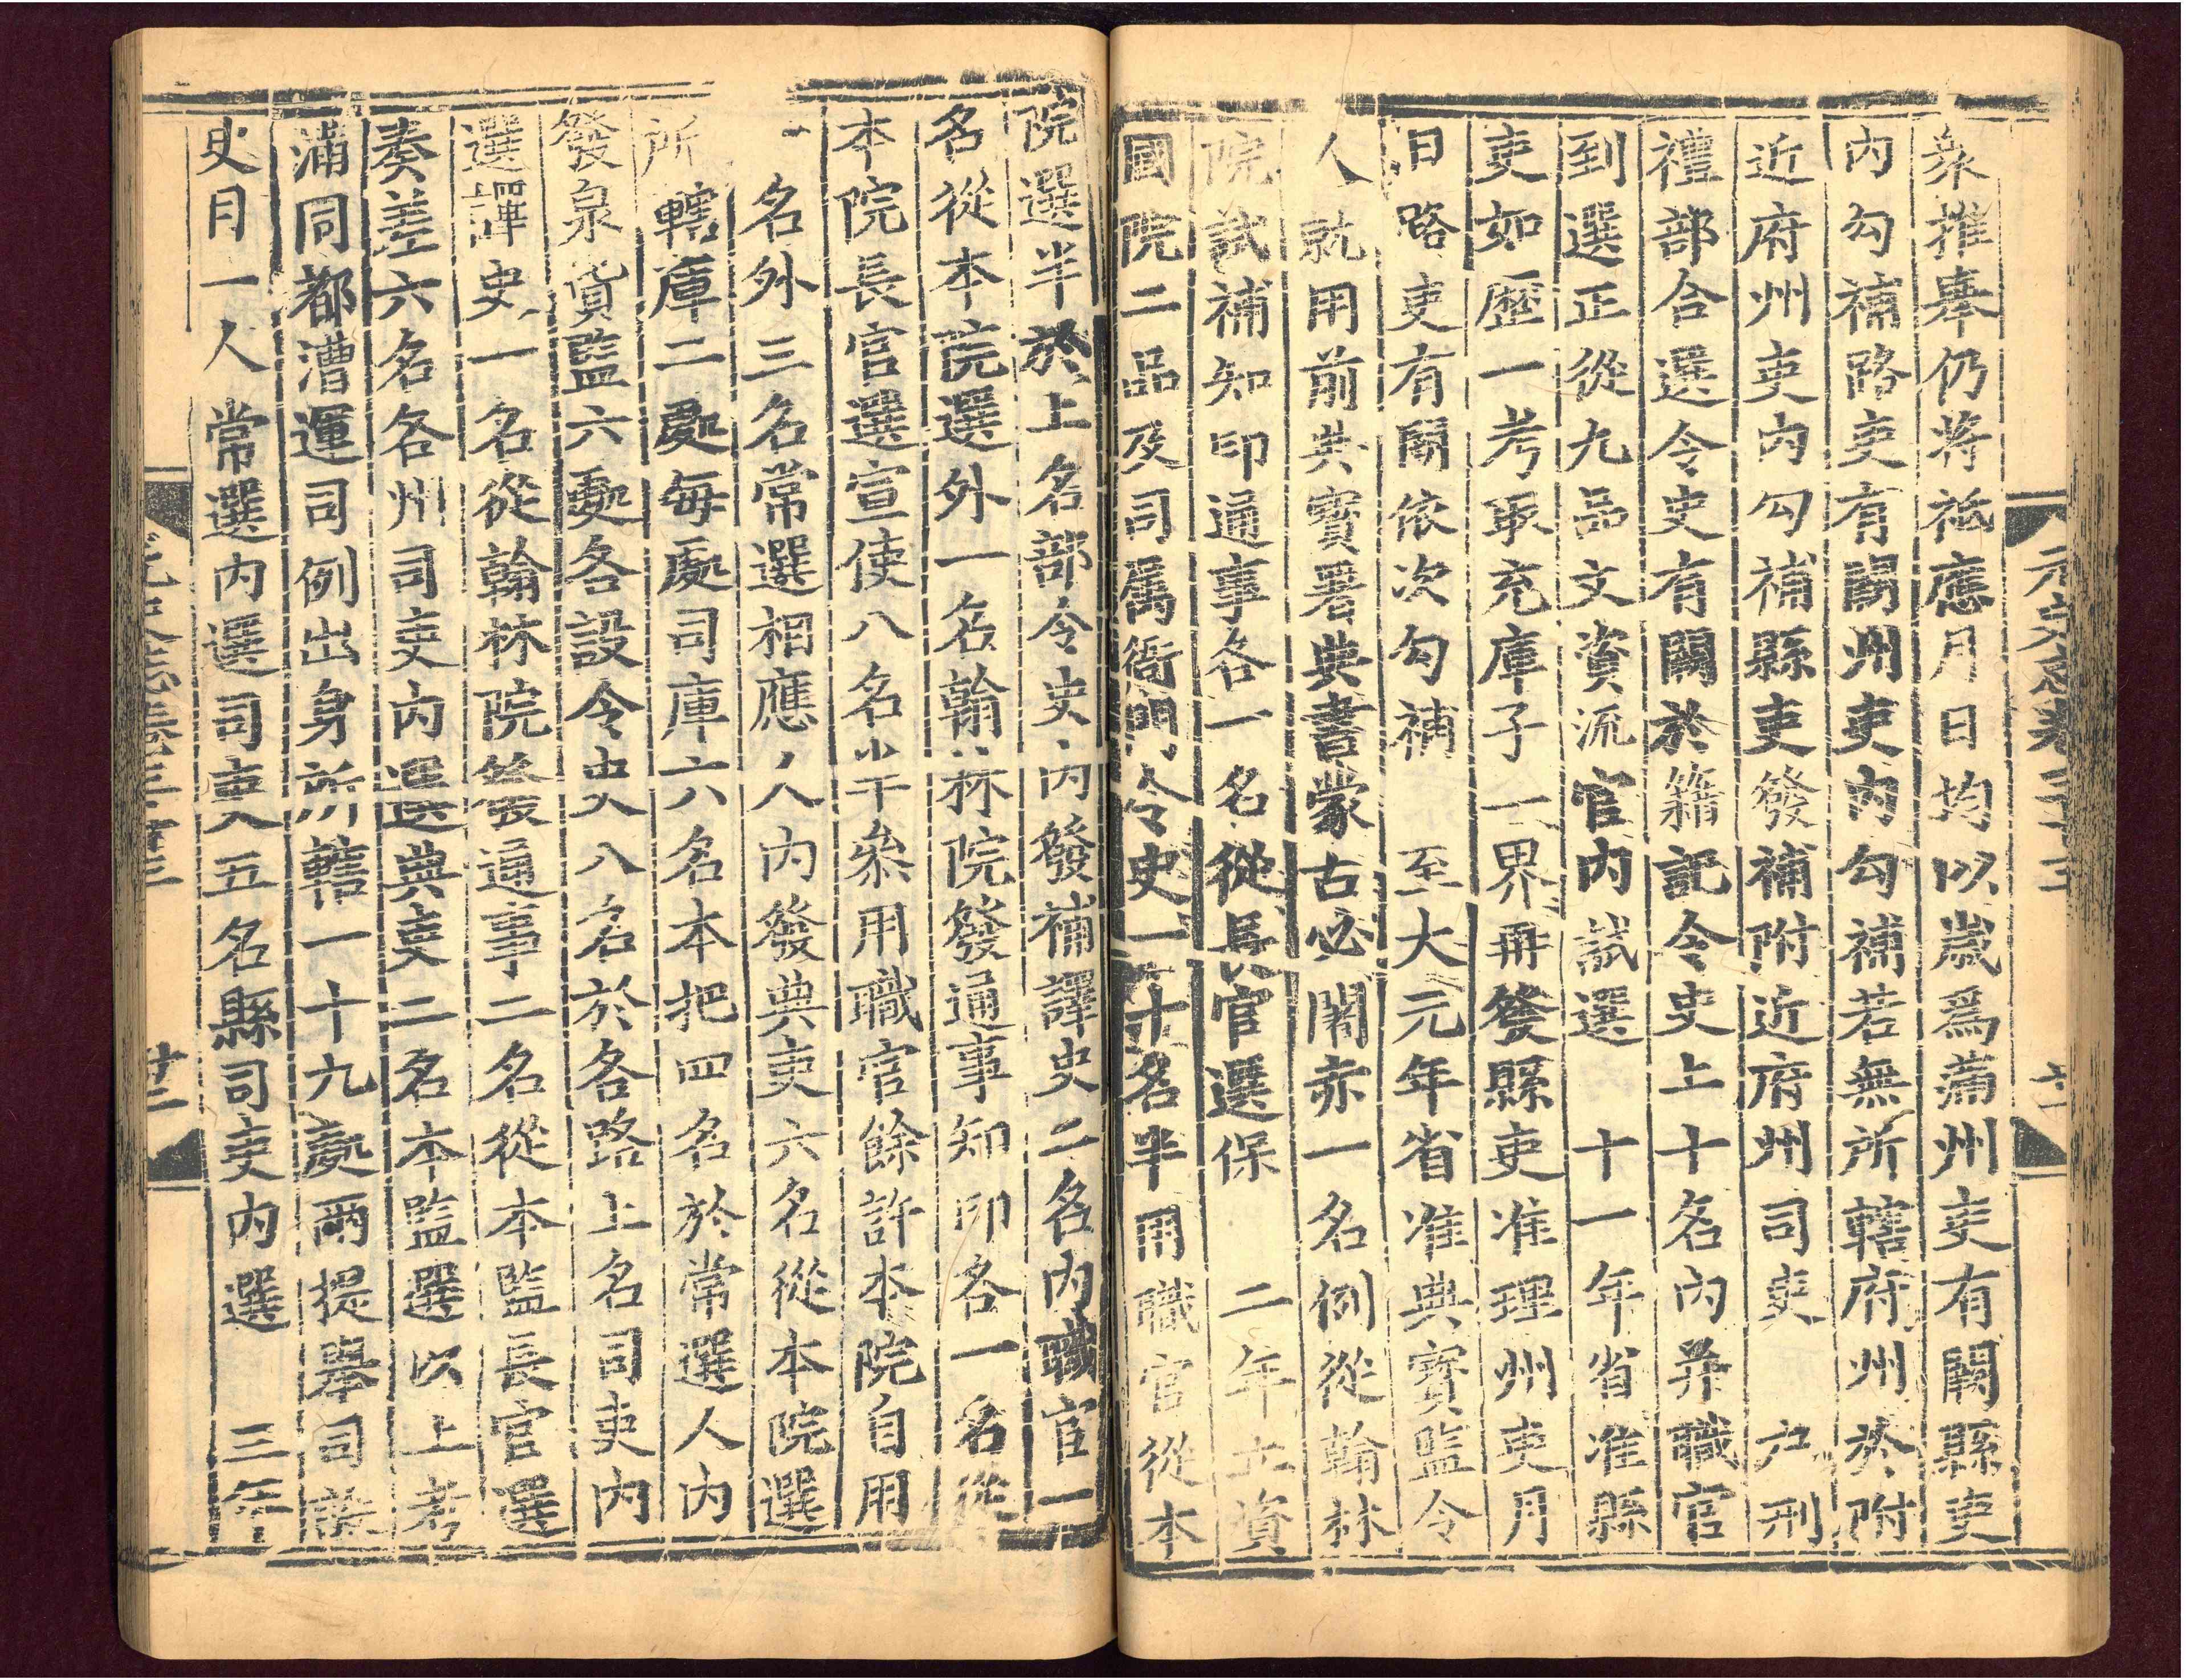 衆推舉仍將祗應月日均以歲爲滿州吏有闕縣吏
內勾補路吏有闕州吏內勾補若無所轄府州於附
近府州吏內勾補縣吏發補附近府州司吏　户刑
禮部合選令史有闕於籍記令史上十名內并職官
到選正從九品文資流官內試選　十一年省准縣
吏如歷一考取充庫子一界再發縣吏准理州吏月
日路吏有闕依次勾補　至大元年省准典寳監令
人就用前典寳署典書蒙古必闍赤一名例從翰林
院試補知印通事各一名從長官選保　二年立資
國院二品及司属衙門令史一十名半用職官從本
院選半於上名部令史內發補譯史二名內職官一
名從本院選外一名翰林院發通事知印各一名從
本院長官選宣使八名半叅用職官餘許本院自用
名外三名常選相應人內發典吏六名從本院選
所轄庫二處每處司庫六名本把四名於常選人內
發泉貨監六處各設令史八名於各路上名司吏內
選譯史一名從翰林院發通事二名從本監長官選
奏差六名各州司吏內選典吏二名本監選以上考
滿同都漕運司例出身所轄一十九處兩提舉司設
吏目一人常選內選司吏五名縣司吏內選　三年